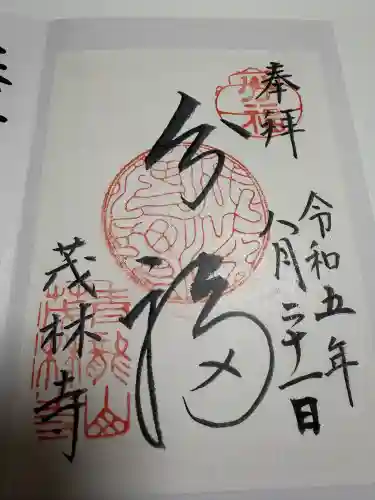 奉拝
令和五年
八月二十一日
分福
茂林寺